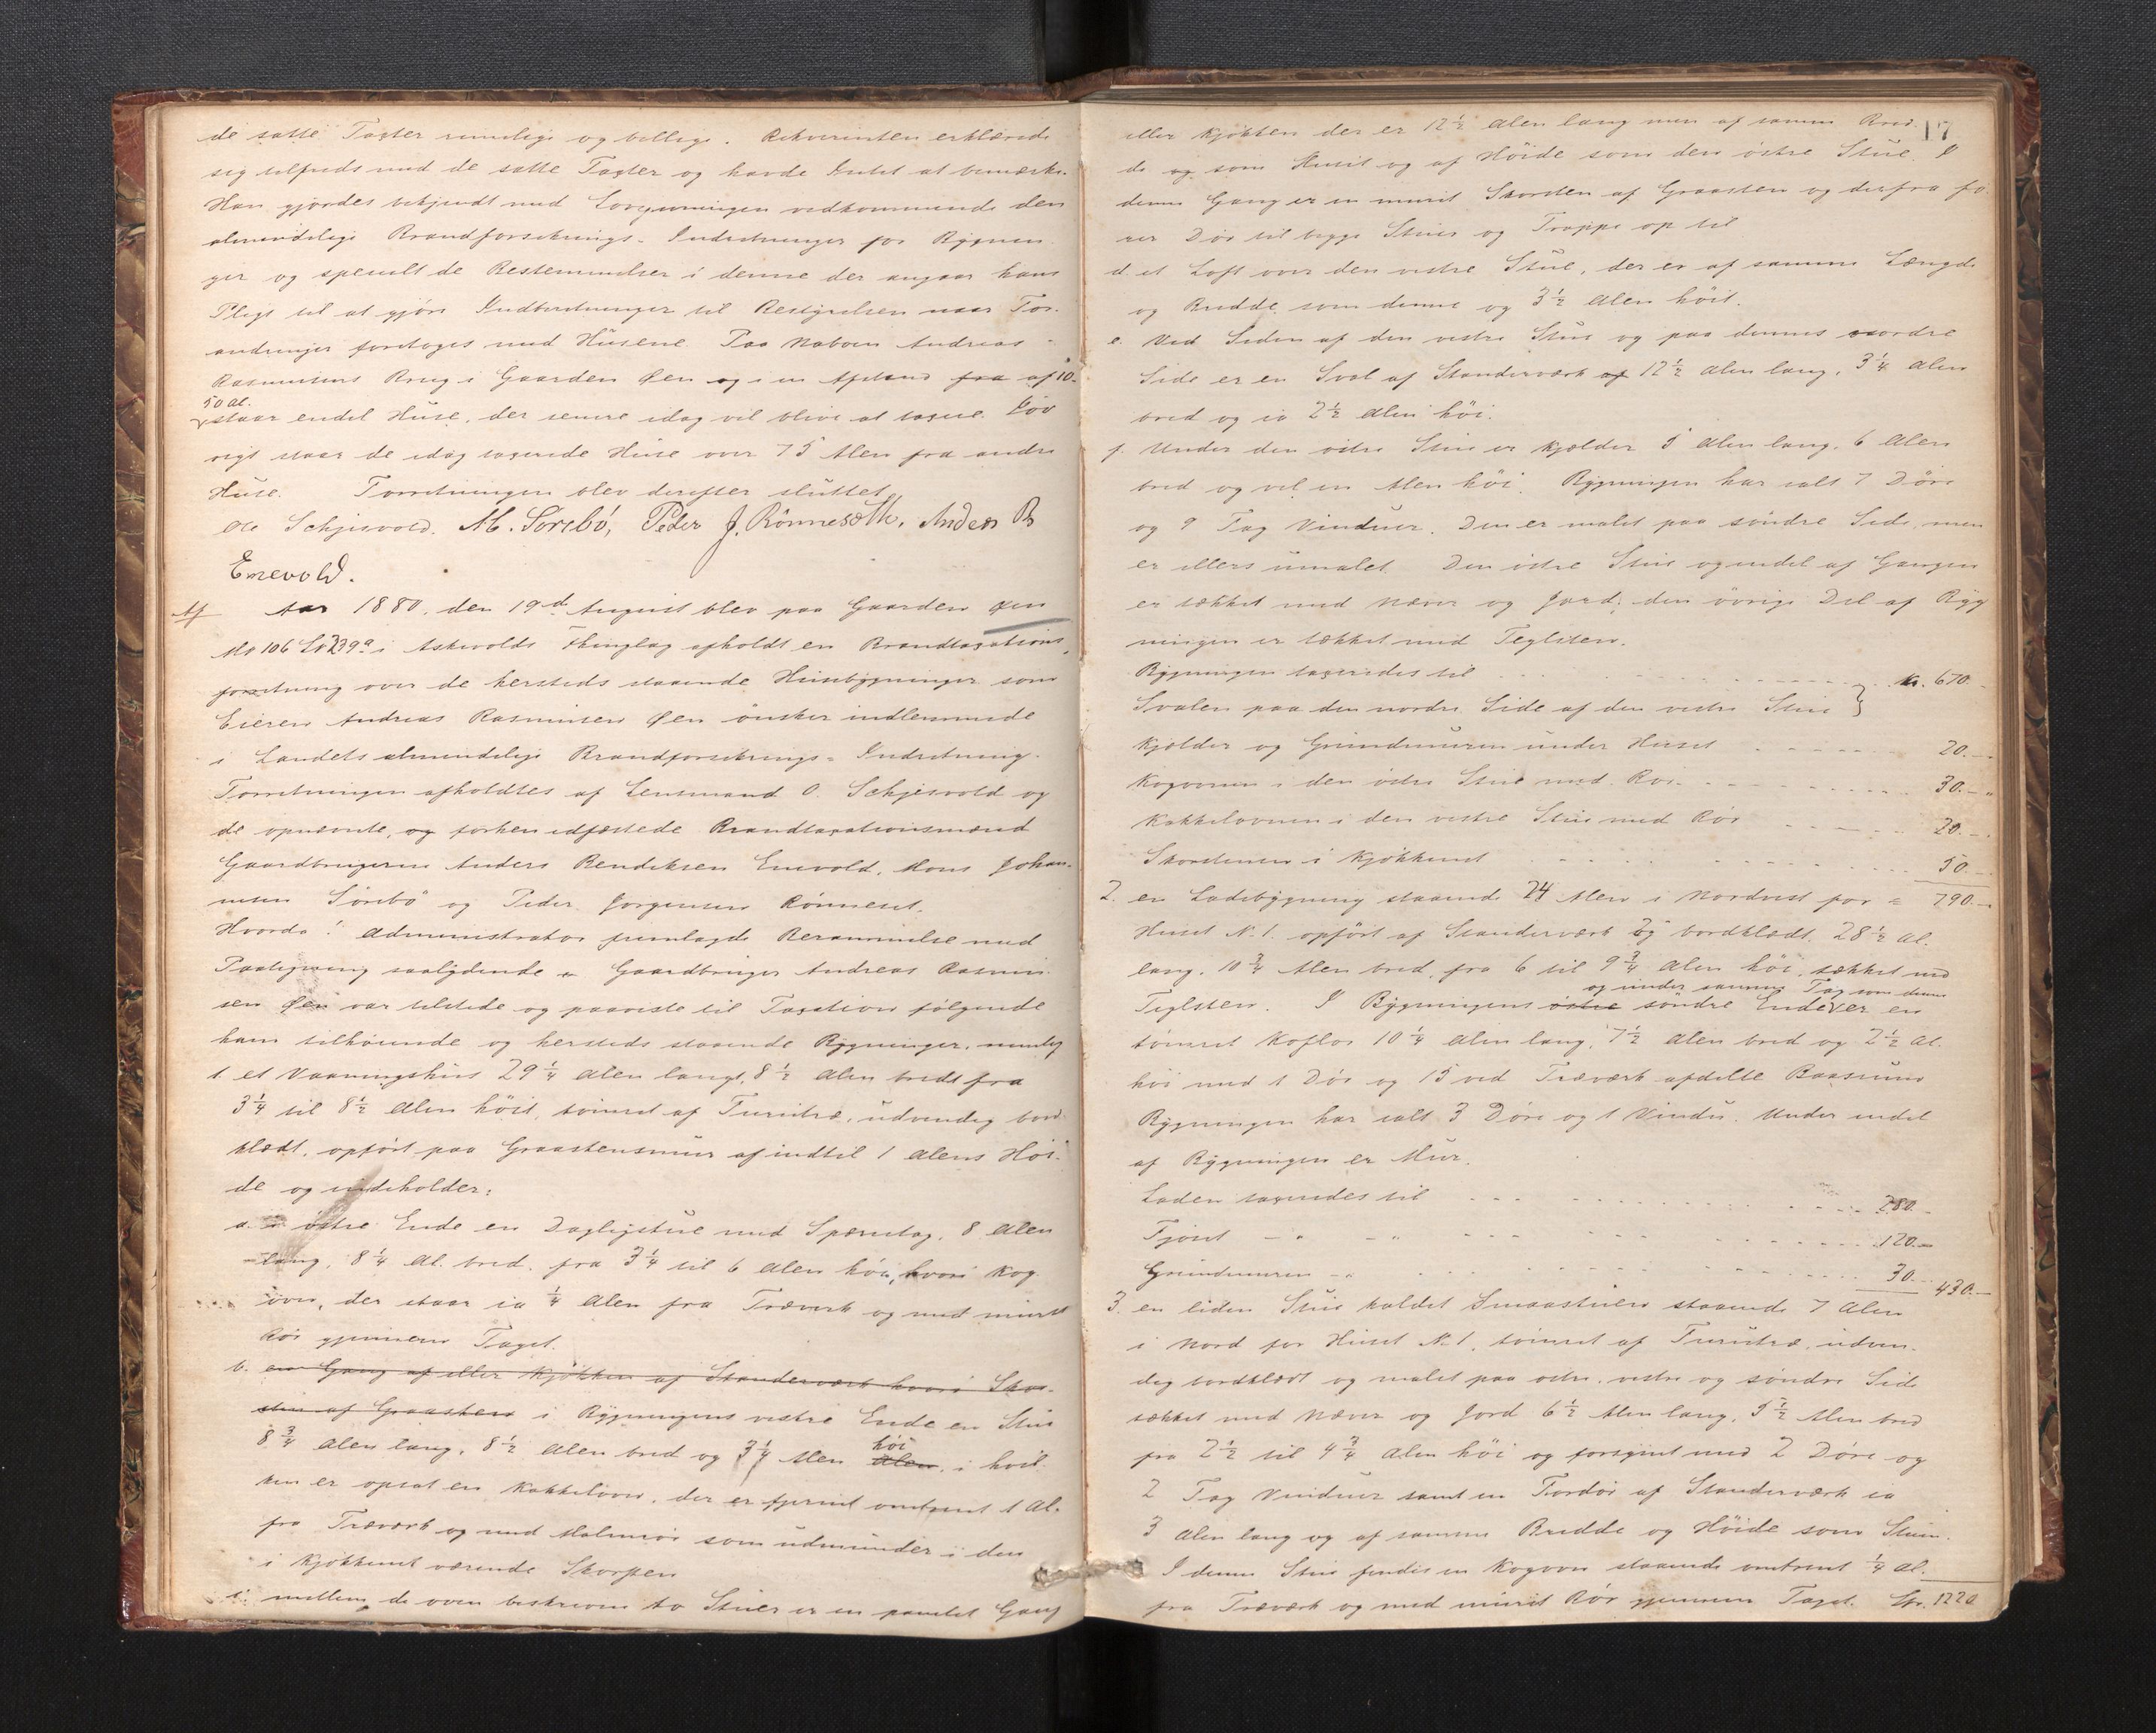 de satte Taxter rimelige og billige. Rekvirenten erklærede
sig tilfreds med de satte Taxter og havde Intet at bemærke.
Han gjordes bekjendt med Lovgivningen vedkommende den
almindelige Brandforsikrings-Indretninger for Bygnin
ger og specielt de Bestemmelser i denne der angaar hans
Pligt til at gjöre Indberetninger til Bestyrelsen naar For-
andringer foretages med Husene. Paa Naboen Andreas
Rasmusens Brug i Gaarden Øen og i en Afstand fra af 10-
50 Al.
staar endel Huse, der senere idag vil blive at taxere. Föv
rigt staar de idag taxerede Huse over 75 Alen fra andre
Huse. Forretningen blev derefter sluttet
Ole Schjesvold. M. Sörebö, Peder J. Rönneseth, Anders B
Enevold.
Af Aar 1880, den 19d August blev paa Gaarden Øen
M No 106 Lö 239a i Askevolds Thinglag afholdt en Brandtaxations
forretning over de hersteds staaende Husebygninger som
Eieren Andreas Rasmusen Øen önsker indlemmede
i Landets almindelige Brandforsikrings-Indretning.
Forretningen afholdtes af Lensmand O. Schjesvold og
de opnævnte, og forhen edfæstede Brandtaxationsmænd
Gaardbrugerne Anders Bendiksen Enevold, Mons Johan-
nesen Sörebö og Peder Jörgensen Rönneset.
Hvorda! Administrator fremlagde Berammelse med
Paategning saalydende Gaardbruger Andreas Rasmu-
sen Øen var tilstede og paaviste til Taxation fölgende
ham tilhörende og hersteds staaende Bygninger, nemlig
1. et Vaaningshus 29 1/4 Alen langt, 8 1/2 Alen bredt fra
3 1/4 til 8 1/2 Alen höit, tömret af Furutræ, udvendig bord
klædt, opfört paa Graastensmur af indtil 1 Alens Höi-
de og indeholder:
a. i östre Ende en Dagligstue med Sperretag, 8 Alen
lang, 8 1/4 Al. bred, fra 3 1/4 til 6 Alen höi, hvori Kog
ovn, der staar ca 1/4 Alen fra Træverk og med muret
Rör gjennem Taget.
b. en Gang af eller Kjökken af Standerværk hvori Skor-
sten af Graasten i Bygningens vestre Ende en Stue
8 3/4 Alen lang, 8 1/2 Alen bred og 3 1/4 Alen Alen höi, i hvil-
ken er opsat en Kakkelovn, der er fjernet omtrent 1 Al.
fra Træværk og med Malmrör som udmunder i den
i Kjökkenet værende Skorsten
c. mellem de oven beskrevne to Stuer er en panelet Gang
17
eller Kjökken der er 12 1/2 Alen lang men af samme Bred-
de og som Huset og af Höide som den östre Stue. I
denne Gang er en muret Skorsten af Graasten og derfra fö
rer Dör til begge Stuer og Trappe op til
d. et Loft over den vestre Stue, der er af samme Længde
og Bredde som denne og 3 1/2 Alen höit.
e. Ved Siden af den vestre Stue og paa dennes nordre
Side er en Sval af Standerværk af 12 1/2 Alen lang, 3 1/4 Alen
bred og ca 2 1/2 Alen höi.
f. Under den östre Stue er Kjelder 5 Alen lang, 6 Alen
bred og vel en Alen höi. Bygningen har ialt 7 Döre
og 9 Fag Vinduer. Den er malet paa söndre Side, men
er ellers umalet. Den östre Stue og endel af Gangen
er tækket med Næver og Jord; den övrige Del af Byg
ningen er tækket med Teglsten.
Bygningen taxeredes til Kr. 670.
Svalen paa den nordre Side af den vestre Stue }
Kjelder og Grundmuren under Huset 20.
Kogovnen i den östre Stue med Rör 30.
Kakkelovnen i den vestre Stue med Rör 20.
Skorstenen i Kjökkenet 50.
2. en Ladebygning staaende 24 Alen i Nordvest for = 790.
Huset N. 1. opfört af Standerværk og bordklædt, 28 1/2 Al.
lang, 10 3/4 Alen bred, fra 6 til 9 3/4 Alen höi, tækket med
og under samme Tag som denne
Teglsten. I Bygningens östre söndre Ende er en
tömret Koflor 10 1/4 Alen lang, 7 1/2 Alen bred og 2 1/2 Al.
höi med 1 Dör og 15 ved Træværk afdelte Baasrum
Bygningen har ialt 3 Döre og 1 Vindu. Under endel
af Bygningen er Mur.
Laden taxeredes til 280.
Fjöset 120.
Grundmuren 30. 430.
3. en liden Stue kaldet Smaastuen staaende 7 Alen
i Nord for Huset N. 1, tömret af Furutræ, udven-
dig bordklædt og malet paa östre, vestre og söndre Side
tækket med Næver og Jord 6 1/2 Alen lang, 5 1/2 Alen bred
fra 2 1/2 til 4 3/4 Alen höi og forsynet med 2 Döre og
2 Fag Vinduer samt en Fordör af Standerværk ca
3 Alen lang og af samme Bredde og Höide som Stuen.
I denne Stue findes en Kogovn staaende omtrent 1/4 Al.
fra Træværk og med muret Rör gjennem Taget. Kr. 1220